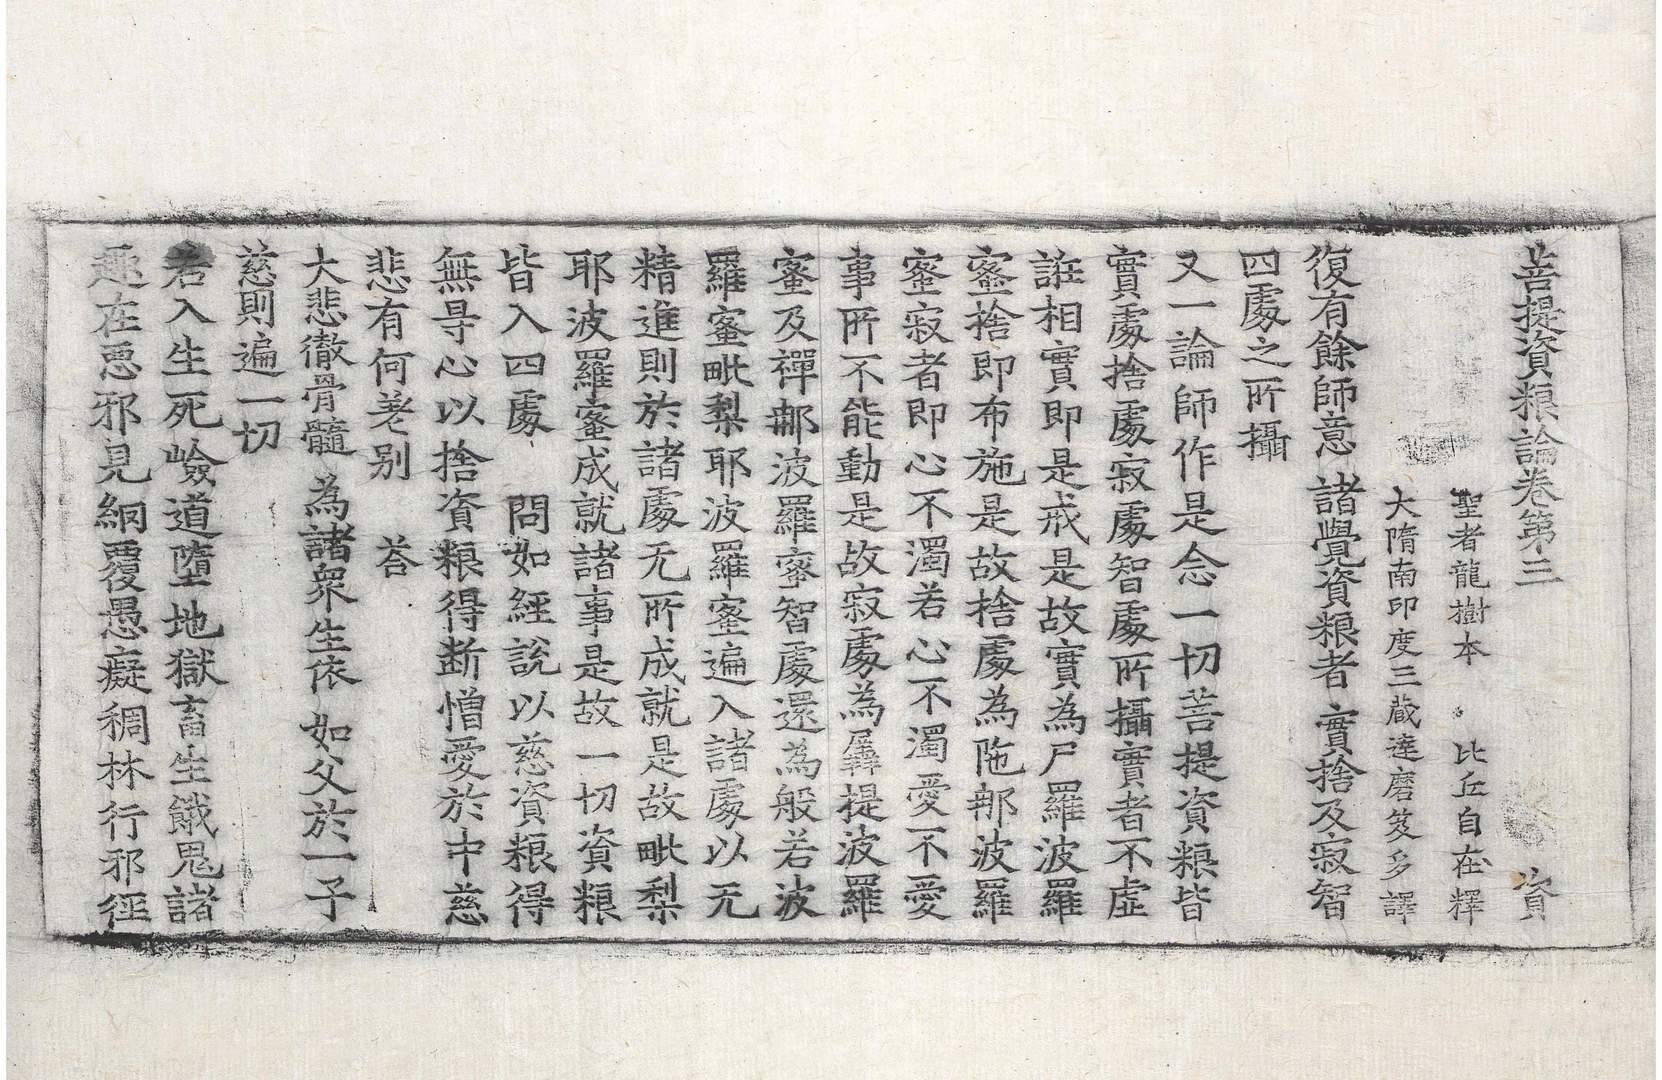 菩提資粮論卷第三 資
聖者龍樹本 比丘自在釋
大隋南印度三藏達磨笈多譯
復有餘師意 諸覺資粮者 實捨及寂智
四處之所攝
又一論師作是念一切菩提資粮皆
實處捨處寂處智處所攝實者不虛
誑相實即是戒是故實為尸羅波羅
蜜捨即布施是故捨處為陁那波羅
蜜寂者即心不濁若心不濁愛不愛
事所不能動是故寂處為羼提波羅
蜜及禪那波羅蜜智處還為般若波
羅蜜毗梨耶波羅蜜遍入諸處以无
精進則於諸處无所成就是故毗梨
耶波羅蜜成就諸事是故一切資粮
皆入四處 問如經說以慈資粮得
無导心以捨資粮得断憎愛於中慈
悲有何差别 荅
大悲徹骨髓 為諸衆生依 如父於一子
慈則遍一切
若入生死嶮道墮地獄畜生餓鬼諸
趣在惡邪見網覆愚癡稠林行邪徑